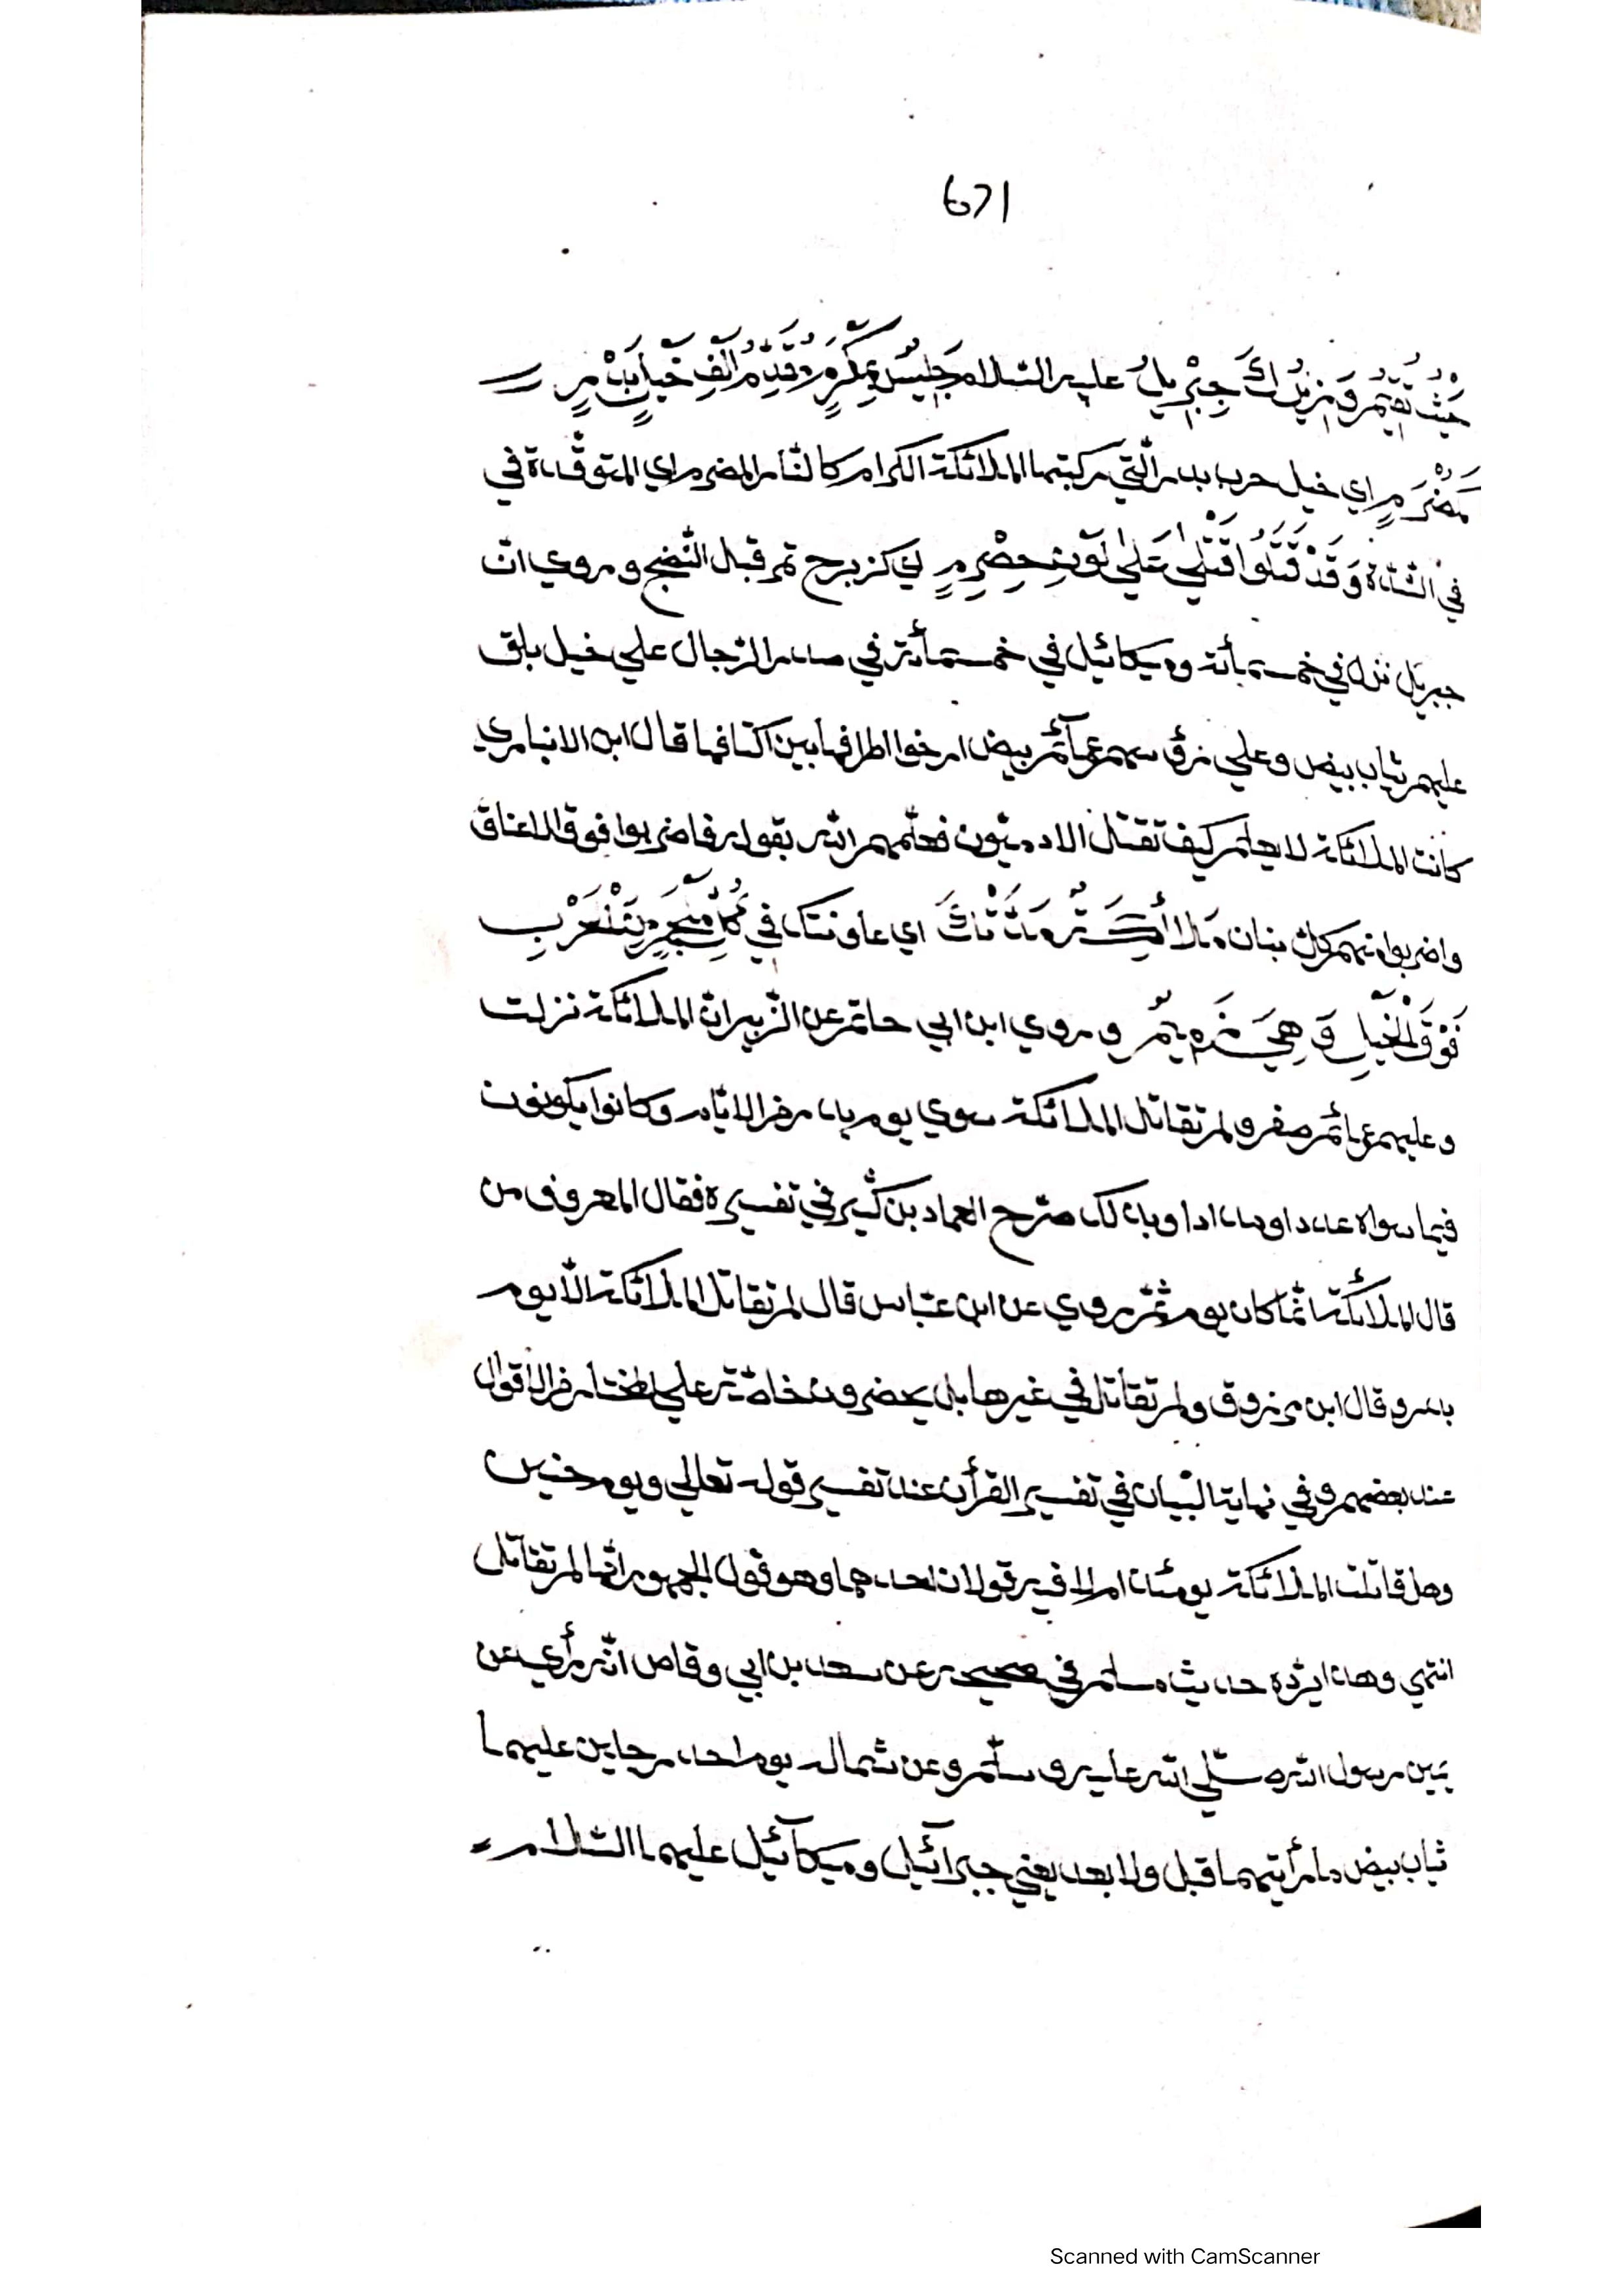 671
حَيْثُ تَقَيَّمُ وَزِيرُكَ جِبْرِيلُ عليه السلام جَلِيسُ مُكَرَّمٍ وَقَدَّمُ أَلْفِ خَيْلِ بَدْرٍ
مُضْرَمٍ اي خيل حرب بدر الّتي ركبتها الملائكة الكرام كالنّار المضرم اي المتوقّدة في
في الشدّة وَقَدْ قَتَلُوا قَتْلَىٰ عَلَىٰ لَوْنِ حِصْرِمٍ اي كزبرج تمر قبل النّضج وروي انّ
جبريل نزل في خمسمأئة وميكائيل في خمسمأئة في صدر الرّجال علي خيل بلق
عليهم ثياب بيض وعلي رؤسهم عمآئم بيض ارخوا اطرافها بين اكتافها قال ابن الانباري
كانت الملائكة لا يعلم كيف تقتل الادميّون فعلّمهم الله بقوله فاضربوا فوق الاعناق
واضربوا منهم كل بنان اي عاونتك في
فَوْقَ الْخَيْلِ وَهِيَ وروي ابن ابي حاتم عن الزّبير انّ الملائكة نزلت
وعليهم عمائم صفر ولم تقاتل الملائكة سوي يوم بدر من الايّام وكانوا يكونون
فيما سواه عددا ومددا وبذلك صرّح العماد بن كثير في تفسيره فقال المعروف من
قال الملائكة انّما كان يوم ثمّ روي عن ابن عبّاس قال لم تقاتل الملائكة الّا يوم
بدر وقال ابن مرزوق ولم تقاتل في غيرها بل يحضرون خاصّة علي المختار من الاقوال
عند بعضهم وفي نهاية البيان في تفسير القرأن عند تفسير قوله تعالي ويوم حنين
وهل قاتلت الملائكة يومئذ ام لا فيه قولان احدهما وهو قول الجمهور انّها لم تقاتل
انتهي وهذا يردّه حديث مسلم في صحيحه عن سعد بن ابي وقاص انّه رأي عن
يمين رسول الله صلّي الله عليه وسلّم وعن شماله يوم احد رجلين عليهما
ثياب بيض ما رأيتهما قبل ولا بعد يعني جبرآئيل وميكآئيل عليهما السّلام
Scanned with CamScanner